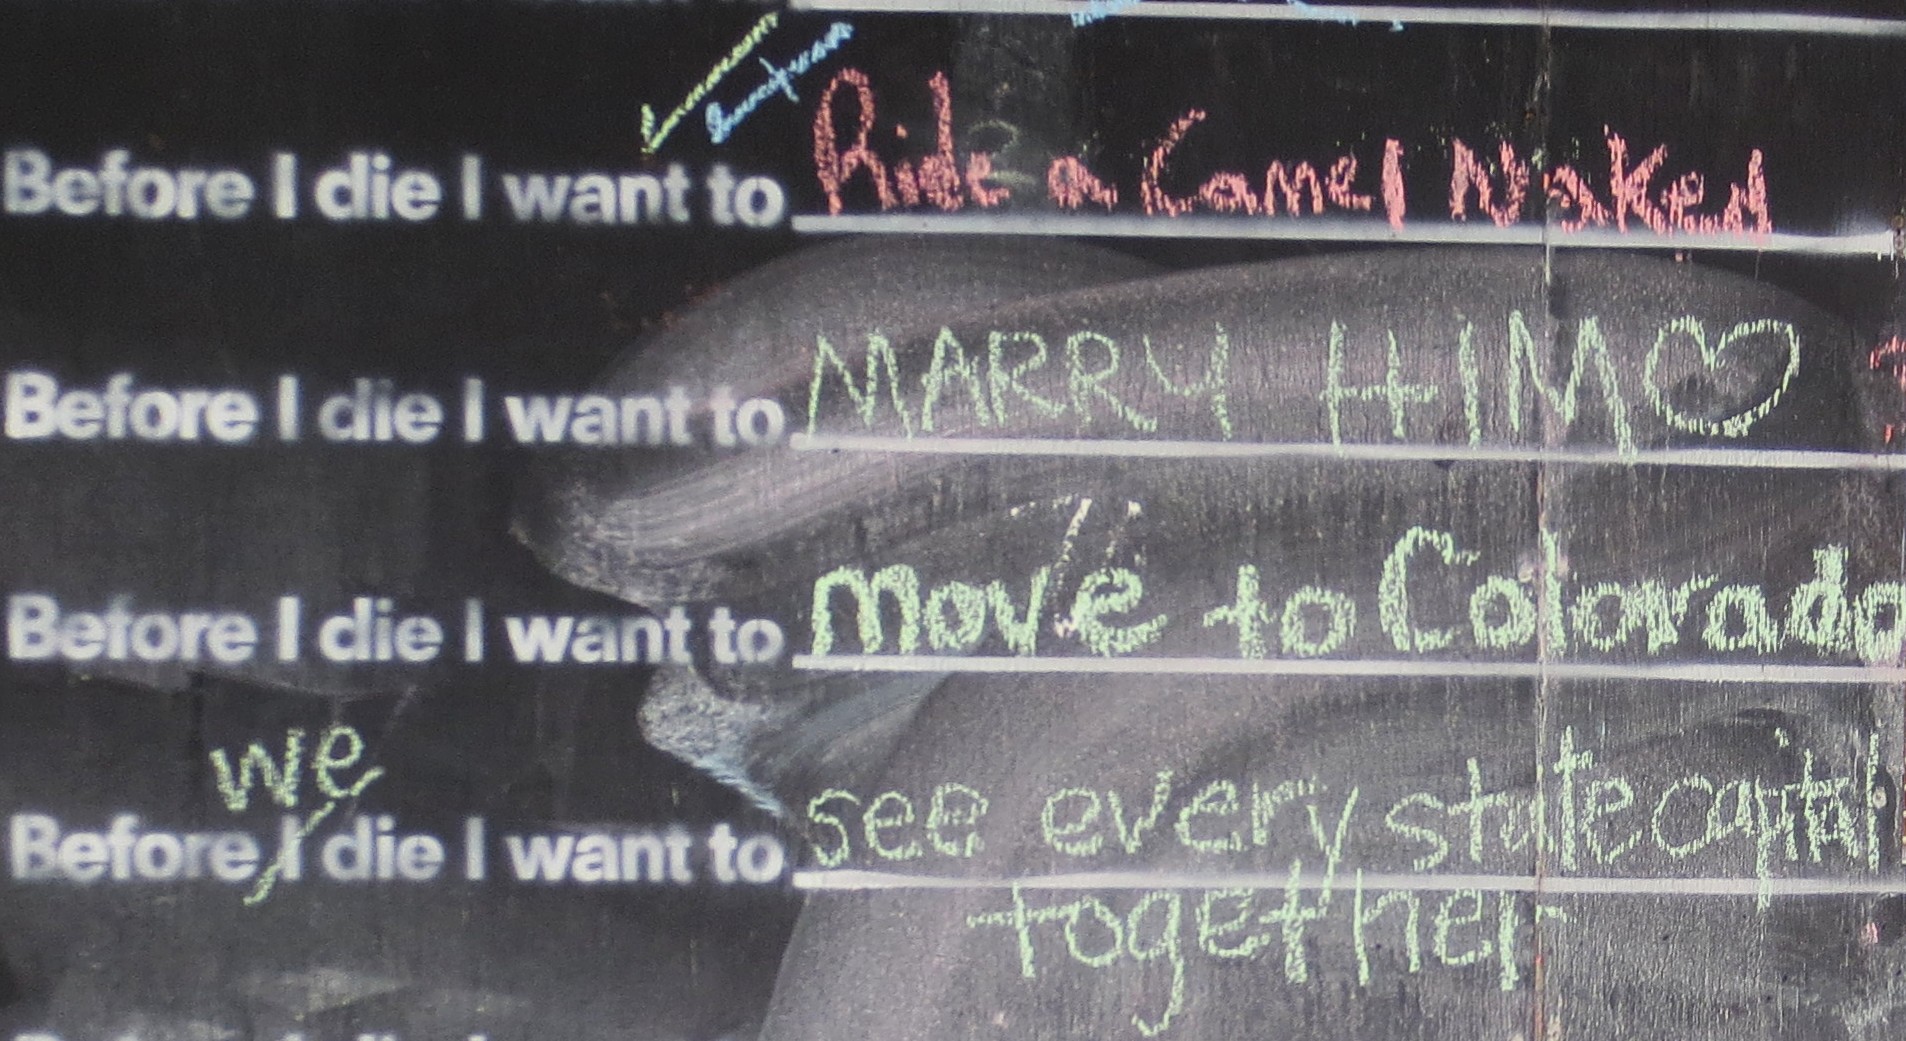 Before I die I want to Ride a Camel Naked
Before I die I want to MARRY HIM
Before I die I want to move to Colorado
we
Before I die I want to see every state capital
together